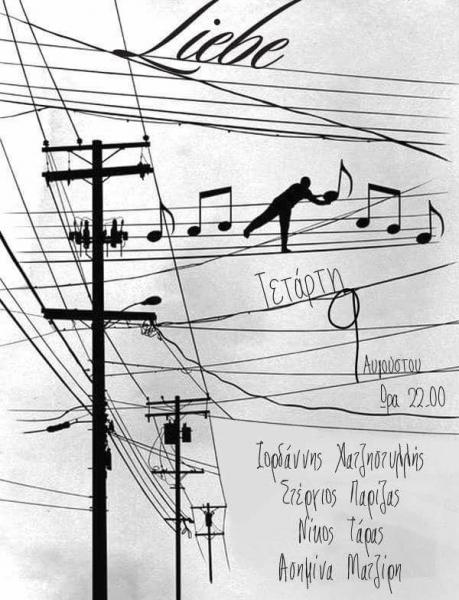 Liebe
Τετάρτη
9
Αυγούστου
Ώρα 22.00
Ιορδάννης Χατζηστυλλής
Στέργιος Παρίζας
Νίκος Τάρας
Ασημίνα Ματζίρη